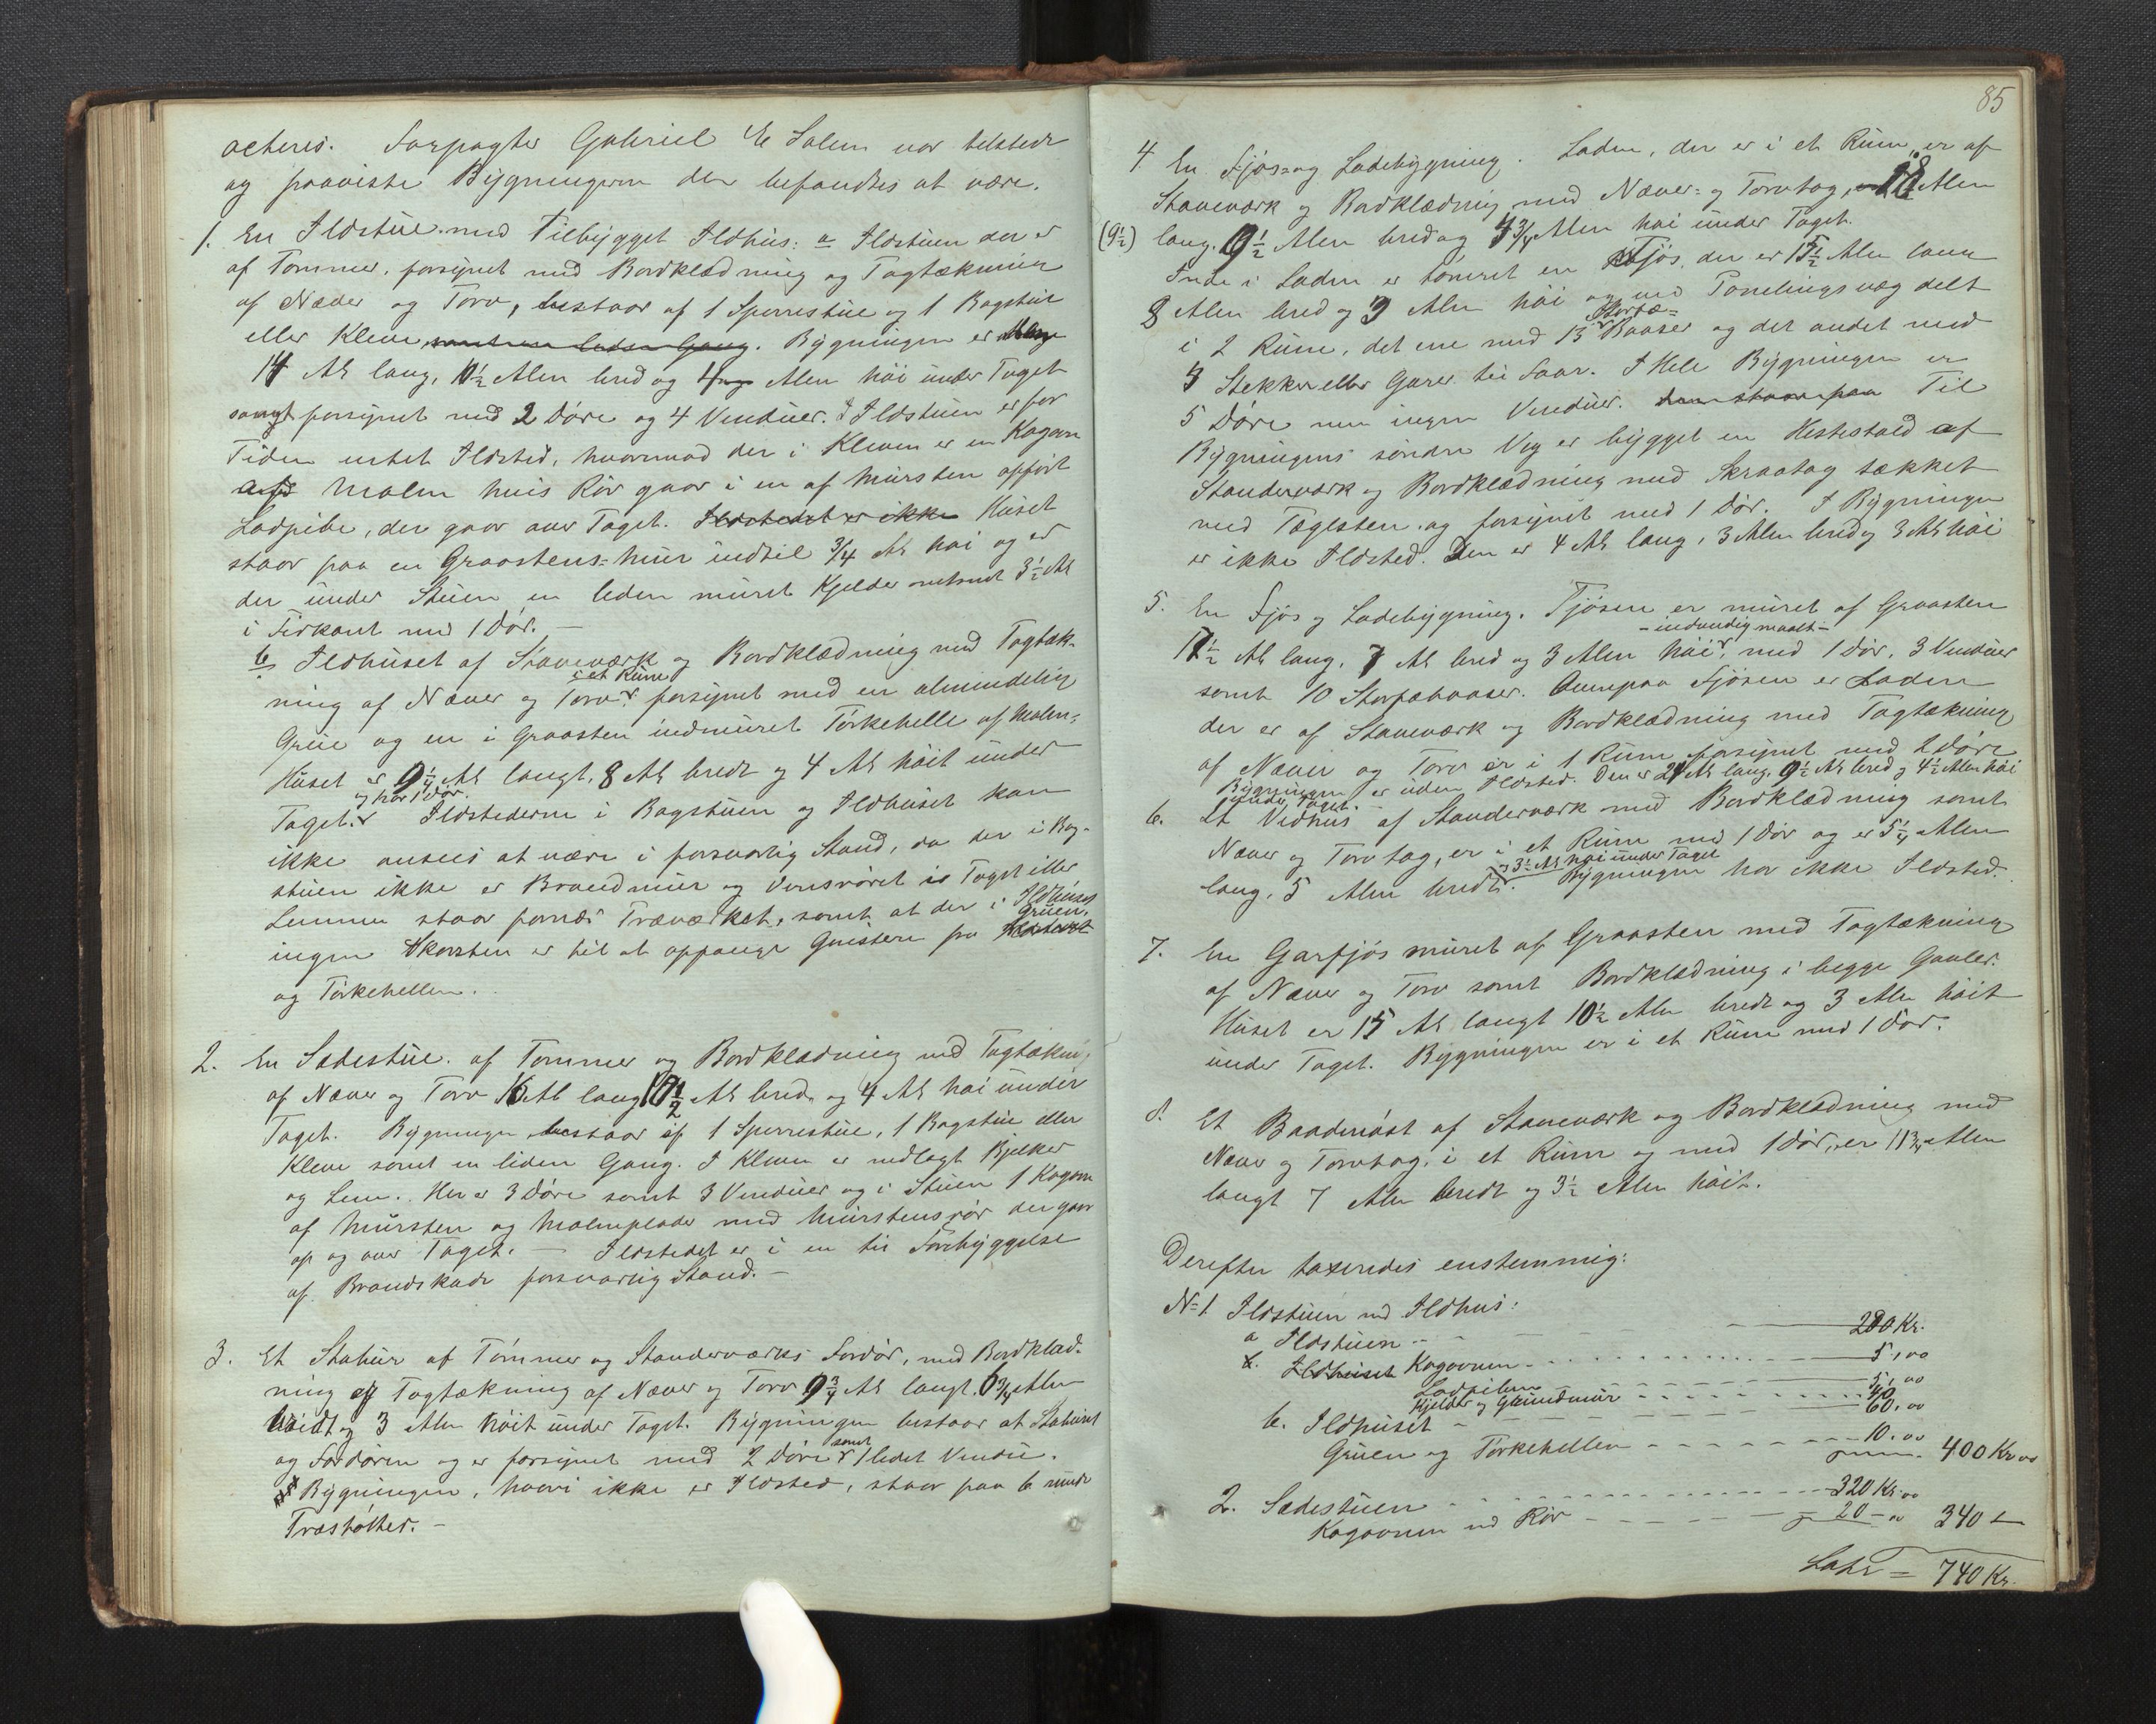 acteres. Forpagter Gabriel E Solem var tilstede
og paaviste Bygningerne der befandtes at være.
1. En Ildstue med tilbygget Ildhus: a Ildstuen der er
af Tømmer, forsynet med Bordklædning og Tagtækning
af Næver og Torv, bestaar af 1 Sperrestue og 1 Bagstue
eller Kleve, samt en liden Gang. Bygningen er
14 Al. lang, 10 1/2 Alen bred og 4 Alen høi under Taget
samt forsynet med 2 Døre og 4 Vinduer. I Ildstuen er for
Tiden intet Ildsted, hvorimod der i Kleven er en Kagovn
af Malm hvis Rør gaar i en af Mursten opført
Ladpibe, der gaar over Taget. Ildstedet er ikke Huset
staar paa en Graastens-Mur indtil 3/4 Al. høi og er
der under Stuen en liden muret Kjelder omtrent 3 1/2 Al.
i Firkant med 1 Dør. -
b, Ildhuset af Stavværk og Bordklædning med Tagtæk-
i et Rum
ning af Næver og Torv. forsynet med en almindelig
Grue og en i Graasten indmuret Tørkehelle af Malm.
Huset er 9 1/4 Al. langt, 8 Al. bredt og 4 Al. høit under
og har 1 Dør.
Taget. Ildstederne i Bagstuen og Ildhuset kan
ikke ansees at være i forsvarlig Stand, da der i Bag-
stuen ikke er Brandmur og Ovnsrøret i Taget eller
Lemmen staar fornær Træværket, samt at der i Ildhuset
ingen Skorsten er til at opfange Gnisterne fra Gruen.
og Tørkehellen.
2. En Sædestue af Tømmer og Bordklædning med Tagtækn.
af Næver og Torv 16 Al. lang 10 1/2 Al. bred og 4 Al. høi under
Taget. Bygningen bestaar af 1 Sperrestue, 1 Bagstue eller
Kleve samt en liden Gang. I Kleven er nedlagt Bjelker
og Lem. Her er 3 Døre samt 3 Vinduer og i Stuen 1 Kagovn
af Mursten og Malmplader med Murstensrør der gaar
op og over Taget. - Ildstedet er i en til Forebyggelse
af Brandskade forsvarlig Stand. -
3. Et Stabur af Tømmer og Standerværks Fordør, med Bordklæd-
ning og Tagtækning af Næver og Torv 9 3/4 Al. langt. 6 3/4 Alen
bredt og 3 Alen høit under Taget. Bygningen bestaar at Staburet
samt
og Fordøren og er forsynet med 2 Døre 1 lidet Vindue.
Bygningen, hvori ikke er Ildsted, staar paa 6 runde
Træstolper. -
85
4. En Fjøs- og Ladebygning. Laden, der er i et Rum, er af
Stavværk og Bordklædning med Næver- og Torvtag, 18 Alen
(9 1/2) lang. 9 1/2 Alen bred og 4 3/4 Alen høi under Taget.
Inde i Laden er tømret en Fjøs, der er 15 1/2 Alen lang
8 Alen bred og 3 Alen høi og ved Panelingsvæg delt
Storfæ-
i 2 Rum, det ene med 13 Baaser og det andet med
3 Stekker eller Garer til Faar. I Hele Bygningen er
5 Døre men ingen Vinduer. Til
Bygningens søndre Væg er bygget en Hestestald af
Standerværk og Bordklædning med Skraatag tækket
med Tægelsten. og forsynet med 1 Dør. I Bygningen
er ikke Ildsted. Den er 4 Al. lang, 3 Alen bred og 3 Al. høi
5. En Fjøs og Ladebygning. Fjøsen er muret af Graasten
- indvendig maalt -
17 1/2 Al. lang, 7 Al. bred og 3 Alen høi, med 1 Dør, 3 Vinduer
samt 10 Storfæbaaser. Ovenpaa Fjøsen er Laden
der er af Stavværk og Bordklædning med Tagtækning
af Næver og Torv er i 1 Rum, forsynet med 2 Døre
Bygningen er uden Ildsted. Den er 24 Al. lang, 9 1/2 Al. bred og 4 1/2 Alen høi
under Taget. -
6. Et Vedhus af Standerværk med Bordklædning samt
Næver og Torvtag, er i et Rum med 1 Dør og er 5 1/4 Alen
og 3 1/2 Al. høi under Taget
lang, 5 Alen bredt. Bygningen har ikke Ildsted.
7. En Garfjøs muret af Graasten med Tagtækning
af Næver og Torv samt Bordklædning i begge Gavler.
Huset er 15 Al. langt 10 1/2 Alen bredt og 3 Alen høit
under Taget. Bygningen er i et Rum med 1 Dør.
8. Et Baadenøst af Stavværk og Bordklædning med
Næver og Torvtag, i et Rum og med 1 Dør, er 11 3/4 Alen
langt 7 Alen bredt og 3 1/2 Alen høit.
Derefter taxeredes enstemmig:
No 1. Ildstuen med Ildhus:
a Ildstuen - - - 280 Kr.
Ildhuset Kagovnen - - - 5,00
Ladpiben - - - 5,00
Kjelder og Grundmur - - - 40,
b. Ildhuset - - - 60,00
Gruen og Tørkehellen - - - 10.00
400 Kr 00
2. Sædestuen - - - 320 Kr. 00
Kagovnen med Rør - - - 20 - 00
340 -
Lateris = 740 Kr.